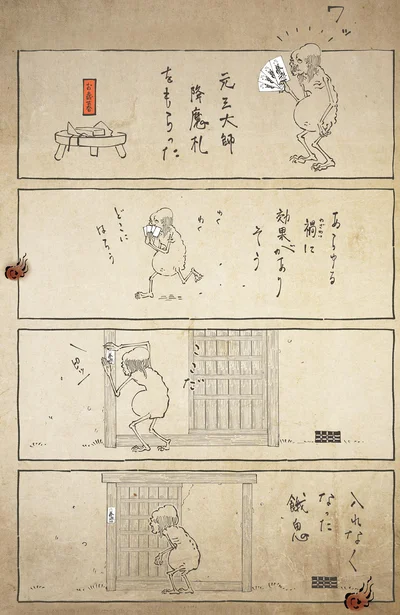 ワッ
元三大師
降魔札
をもらった
お歳暮
あらゆる
禍に
わざわい
効果があり
そう
わく
わく
どこに
はろう
ここだ
入れなく
なった
餓鬼